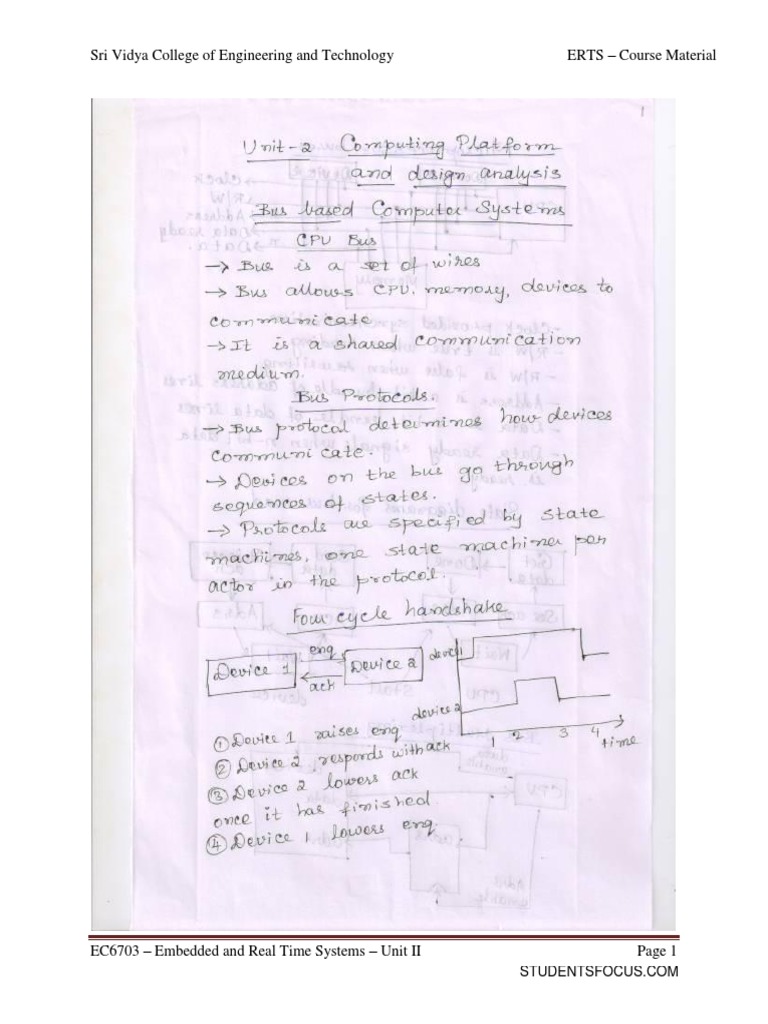 Sri Vidya College of Engineering and Technology ERTS – Course Material
1
Unit-2 Computing Platform
and design analysis
Bus based Computer Systems
CPU Bus
→ Bus is a set of wires
→ Bus allows CPU, memory, devices to
communicate
→ It is a shared communication
medium.
Bus Protocols.
→ Bus protocol determines how devices
communicate.
→ Devices on the bus go through
sequences of states.
→ Protocols are specified by state
machines, one state machine per
actor in the protocol.
Four cycle handshake
Device 1 enq ack Device 2
device1
device 2
1 2 3 4 time
① Device 1 raises enq
② Device 2 responds with ack
③ Device 2 lowers ack
once it has finished
④ Device 1 lowers enq.
EC6703 – Embedded and Real Time Systems – Unit II Page 1
STUDENTSFOCUS.COM